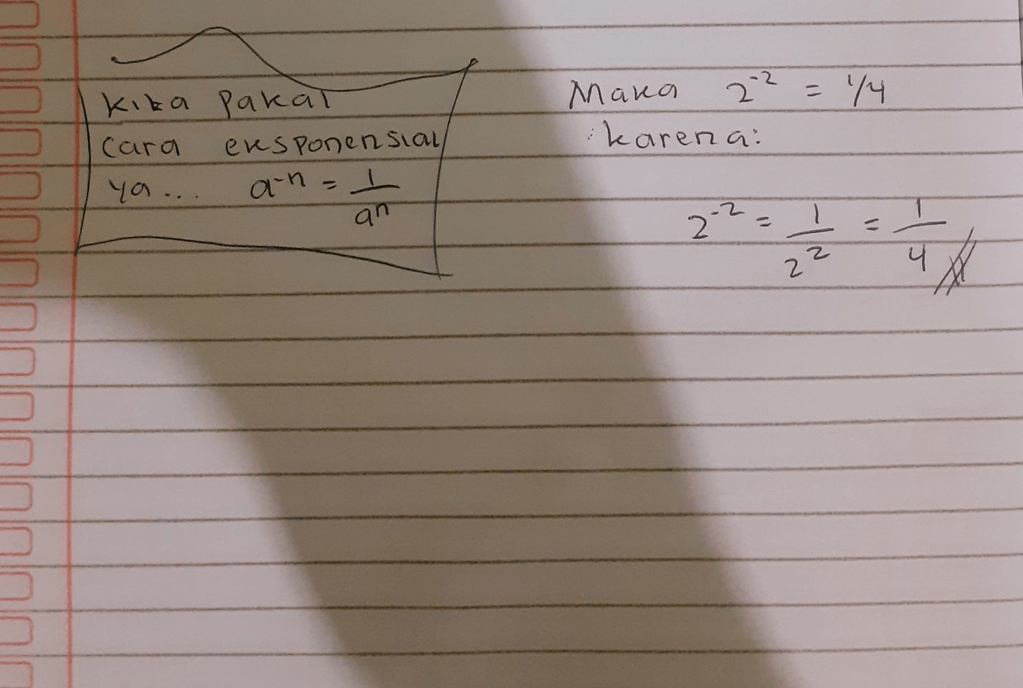 Kita pakai
cara eksponensial
ya... a⁻ⁿ = 1/aⁿ
Maka 2⁻² = 1/4
karena:
2⁻² = 1/2² = 1/4